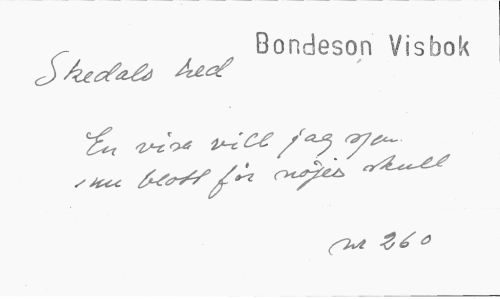 Bondeson Visbok
Skedals hed
En visa vill jag sjun
nu blott för nöjes skull
nr 260